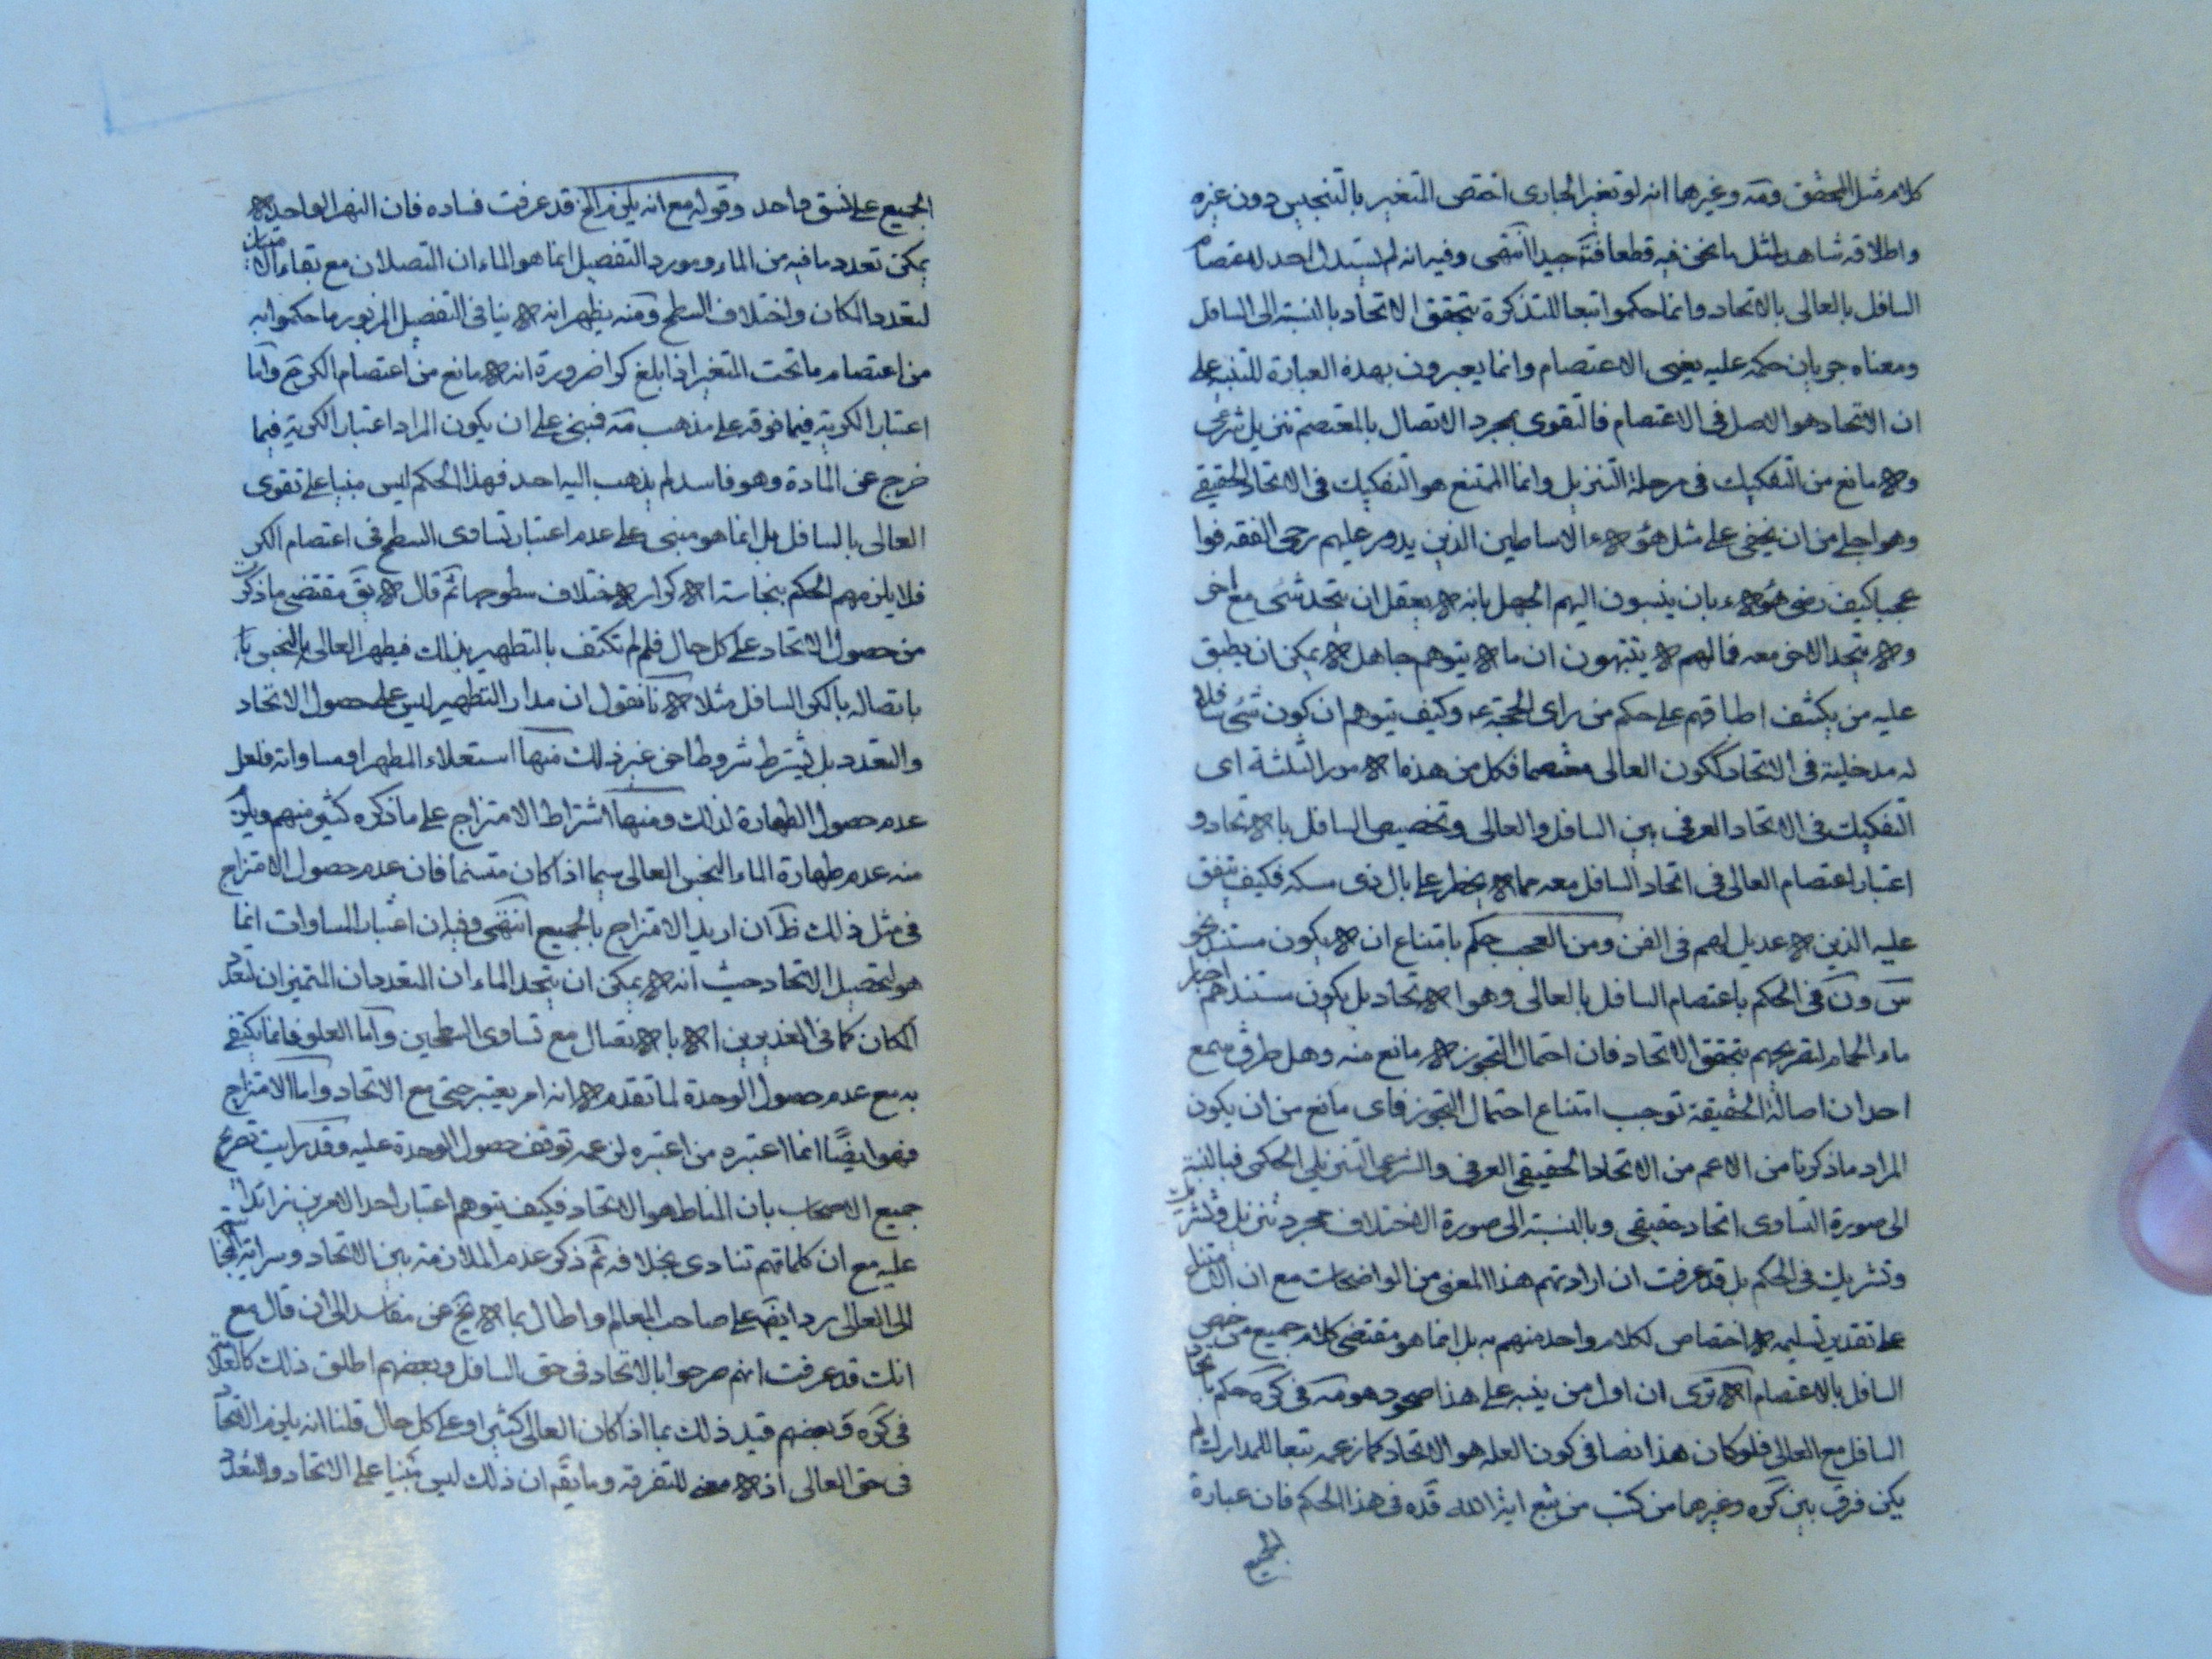 كلام مثل المحقق ومه وغيرهما انه لو تغير الجارى اختص المتغير بالتنجيس دون غيره
واطلاقه شاهد لمثل ما نحن فيه قطعا فتّه جيدا انتهى وفيه انه لم يستدل احد لاعتصام
السافل بالعالى بالاتحاد وانما حكموا تبعا للتذكرة بتحقق الاتحاد بالنسبة الى السافل
ومعناه جريان حكمه عليه يعنى الاعتصام وانما يعبرون بهذه العبارة للتنبيه على
ان الاتحاد هو الاصل فى الاعتصام فالتقوى بمجرد الاتصال بالمعتصم تنزيل شرعى
ولا مانع من التفكيك فى مرحلة التنزيل وانما الممتنع هو التفكيك فى الاتحاد الحقيقى
وهو اجلى من ان يخفى على مثل هؤلاء الاساطين الذين يدور عليهم رحى الفقه فوا
عجبا كيف رضى هؤلاء بان ينسبون اليهم الجهل بانه لا يعقل ان يتحد شئى مع اخر
ولا يتحد الاخر معه فمالهم لا يتنبهون ان ما لا يتوهم جاهل لا يمكن ان يطبق
عليه من يكشف اطباقهم على حكم من راى الحجة عه وكيف يتوهم ان كون شئى سافلا
له مدخلية فى الاتحاد ككون العالى معتصما فكل من هذه الامور الثلثة اى
التفكيك فى الاتحاد العرفى بين السافل والعالى وتخصيص السافل بالاتحاد و
اعتبار اعتصام العالى فى اتحاد السافل معه مما لا يخطر على بال ذى مسكه فكيف يتفق
عليه الذين لا عديل لهم فى الفن ومن العجب حكم بامتناع ان لا يكون مستند نحو
س ون فى الحكم باعتصام السافل بالعالى وهو الاتحاد بل يكون مستندهم اخبار
ماء الحمام لتصريحهم بتحقق الاتحاد فان احتمال التجوز لا مانع منه وهل طرق سمع
احد ان اصالة الحقيقة توجب امتناع احتمال التجوز فاى مانع من ان يكون
المراد ما ذكرنا من الاعم من الاتحاد الحقيقى العرفى والشرعى التنزيلى الحكمى فبالنسبة
الى صورة التساوى اتحاد حقيقى وبالنسبة الى صورة الاختلاف مجرد تنزيل
وتشريك فى الحكم بل قد عرفت ان ارادتهم هذا المعنى من الواضحات مع ان الامتناع
على تقدير تسليمه لا اختصاص لكلام واحد منهم به بل انما هو مقتضى كلام جميع من خص
السافل بالاعتصام الا ترى ان اول من ينبه على هذا هو مه فى كره حكم باتحاد
السافل مع العالى فلو كان هذا نصا فى كون العلة هو الاتحاد كما زعمه تبعا للمدارك لم
يكن فرق بين كره وغيرها من كتب من تبع اية الله قده فى هذا الحكم فان عبارة
الجميع
الجميع على نسق واحد وقوله مع انه يلزم الخ قد عرفت فساده فان النهر الواحد لا
يمكن تعدد ما فيه من الماء ومورد التفصيل انما هو الماءان المتصلان مع بقاء الامتياز
لتعدد المكان واختلاف السطح ومنه يظهر انه لا ينافى التفصيل المزبور ما حكموا به
من اعتصام ما تحت المتغير اذا بلغ كرا ضرورة انه لا مانع من اعتصام الكر ح واما
اعتبار الكرية فيما فوقه على مذهب مه فمبنى على ان يكون المراد اعتبار الكرية فيما
خرج عن المادة وهو فاسد لم يذهب اليه احد فهذا الحكم ليس مبنيا على تقوى
العالى بالسافل بل انما هو مبنى على عدم اعتبار تساوى السطح فى اعتصام الكر
فلا يلزمهم الحكم بنجاسة الاكرار لاختلاف سطوحها ثم قال لا يق مقتضى ما ذكرت
من حصول الاتحاد على كل حال فلم لم تكتف بالتطهير بذلك فيطهر العالى النجس
باتصاله بالكر السافل مثلا لانا نقول ان مدار التطهير ليس على حصول الاتحاد
والتعدد بل يشترط شروط اخر غير ذلك منها استعلاء المطهر او مساواته فلعل
عدم حصول الطهارة لذلك ومنها اشتراط الامتزاج على ما ذكره كثير منهم ويلزم
منه عدم طهارة الماء النجس العالى سيما اذا كان متسنما فان عدم حصول الامتزاج
فى مثل ذلك ظ ان اريد الامتزاج بالجميع انتهى وفيه ان اعتبار المساوات انما
هو لتحصيل الاتحاد حيث انه لا يمكن ان يتحد الماءان المتعددان المتميزان لتعدد
المكان كما فى الغديرين الا بالاتصال مع تساوى السطحين واما العلو فانما يكتفى
به مع عدم حصول الوحدة لما تقدم لا انه امر يعتبر حتى مع الاتحاد واما الامتزاج
فهو ايضًا انما اعتبره من اعتبره لزعمه توقف حصول الوحدة عليه وقد رايت تصريح
جميع الاصحاب بان المناط هو الاتحاد فكيف يتوهم اعتبار احد الامرين زائدا
عليه مع ان كلماتهم تنادى بخلافه ثم ذكر عدم الملازمة بين الاتحاد وسراية النجاسة
الى العالى ردا يضه على صاحب المعالم واطال بما لا يخ عن مفاسد الى ان قال مع
انك قد عرفت انهم صرحوا بالاتحاد فى حق السافل وبعضهم اطلق ذلك كالعلامة
فى كره وبعضهم قيد ذلك بما اذا كان العالى كثيرا وعلى كل حال قلنا انه يلزم الاتحاد
فى حق العالى اذ لا معنى للتفرقة وما يقه ان ذلك ليس مبنيا على الاتحاد والتعدد